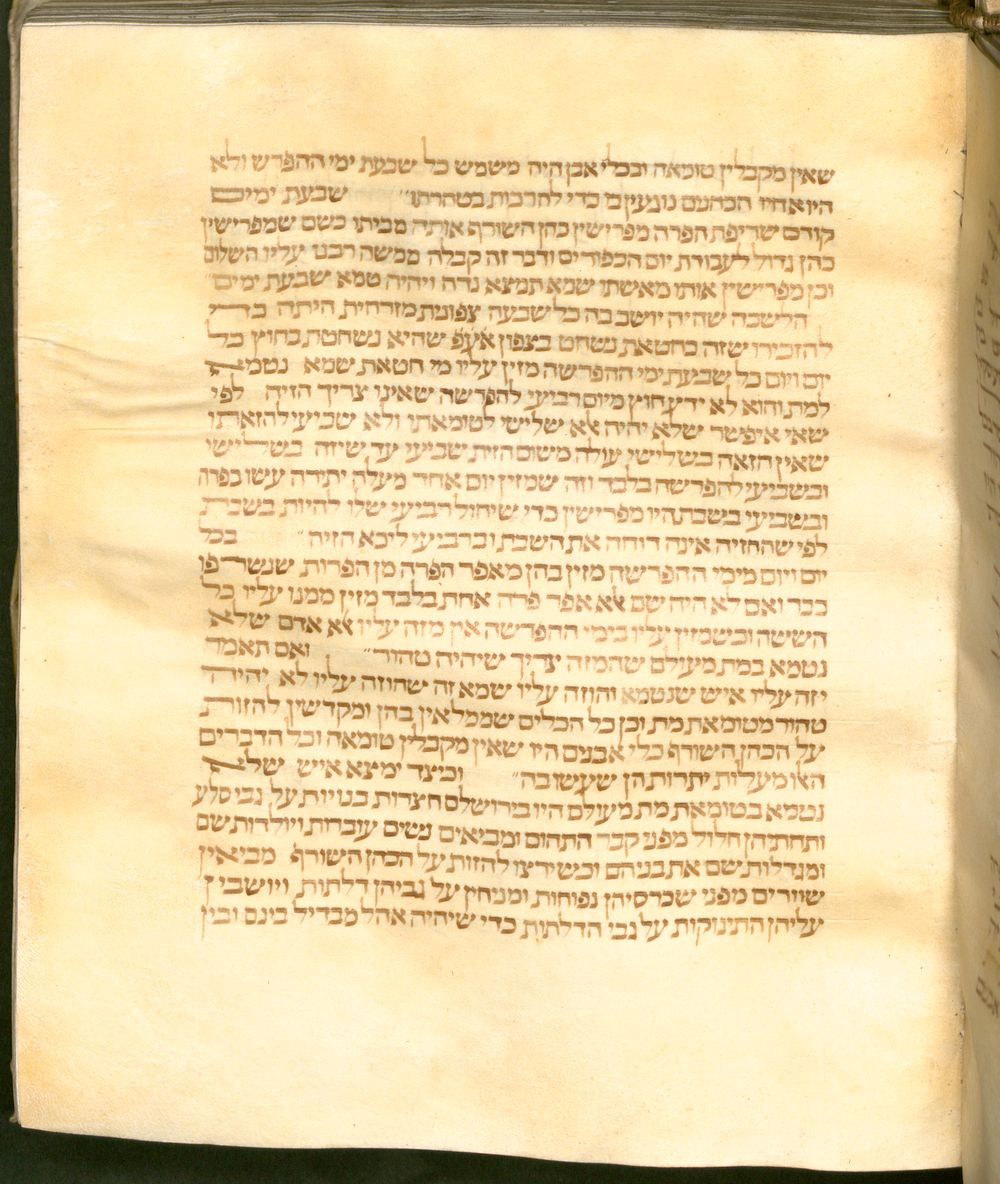 שאין מקבלין טומאה ובכלי אבן היה משמש כל שבעת ימי ההפרש ולא
היו אחיו הכהנים נוגעין בו כדי להרבות בטהרתו״ שבעת ימים
קודם שריפת הפרה מפרישין כהן השורף אותה מביתו כשם שמפרישין
כהן גדול לעבודת יום הכפורים ודבר זה קבלה ממשה רבנו עליו השלום
וכן מפרישין אותו מאשתו שמא תמצא נדה ויהיה טמא שבעת ימים״
הלשכה שהיה יושב בה כל שבעה צפונית מזרחית היתה כדי
להזכירו שזה כחטאת נשחט בצפון אעפ שהיא נשחטת בחוץ כל
יום ויום כל שבעת ימי ההפרשה מזין עליו מי חטאת שמא נטמא
למת והוא לא ידע חוץ מיום רביעי להפרשה שאינו צריך הזיה לפי
שאי איפשר שלא יהיה לא שלישי לטומאתו ולא שביעי להזאתו
שאין הזאה בשלישי עולה משום הזית שביעי עד שיזה בשלישי
ובשביעי להפרשה בלבד וזה שמזין יום אחר מעלה יתירה עשו בפרה
ובשביעי בשבת היו מפרישין כדי שיחול רביעי שלו להיות בשבת
לפי שההזיה אינה דוחה את השבת וברביעי ליכא הזיה״ בכל
יום ויום מימי ההפרשה מזין בהן מאפר הפרה מן הפרות שנשרפו
כבר ואם לא היה שם אלא אפר פרה אחת בלבד מזין ממנו עליו כל
הששה וכשמזין עליו בימי ההפרשה אין מזה עליו אלא אדם שלא
נטמא במת מעולם שהמזה צריך שיהיה טהור״ ואם תאמר
יזה עליו איש שנטמא והוזה עליו שמא זה שהוזה עליו לא יהיה
טהור מטומאת מת וכן כל הכלים שממלאין בהן ומקדשין להזות
על הכהן השורף כלי אבנים היו שאין מקבלין טומאה וכל הדברים
האלו מעלות יתרות הן שעשו בה״ וכיצד ימצא איש שלא
נטמא בטומאת מת מעולם היו בירושלם חצרות בנויות על גבי סלע
ותחתיהן חלול מפני קבר התהום ומביאים נשים עוברות ויולדות שם
ומגדלות שם את בניהם וכשירצו להזות על הכהן השורף מביאין
שוורים מפני שכרסיהן נפוחות ומניחין על גביהן דלתות ויושבין
עליהן התינוקות על גבי הדלתות כדי שיהיה אהל מבדיל בינם ובין